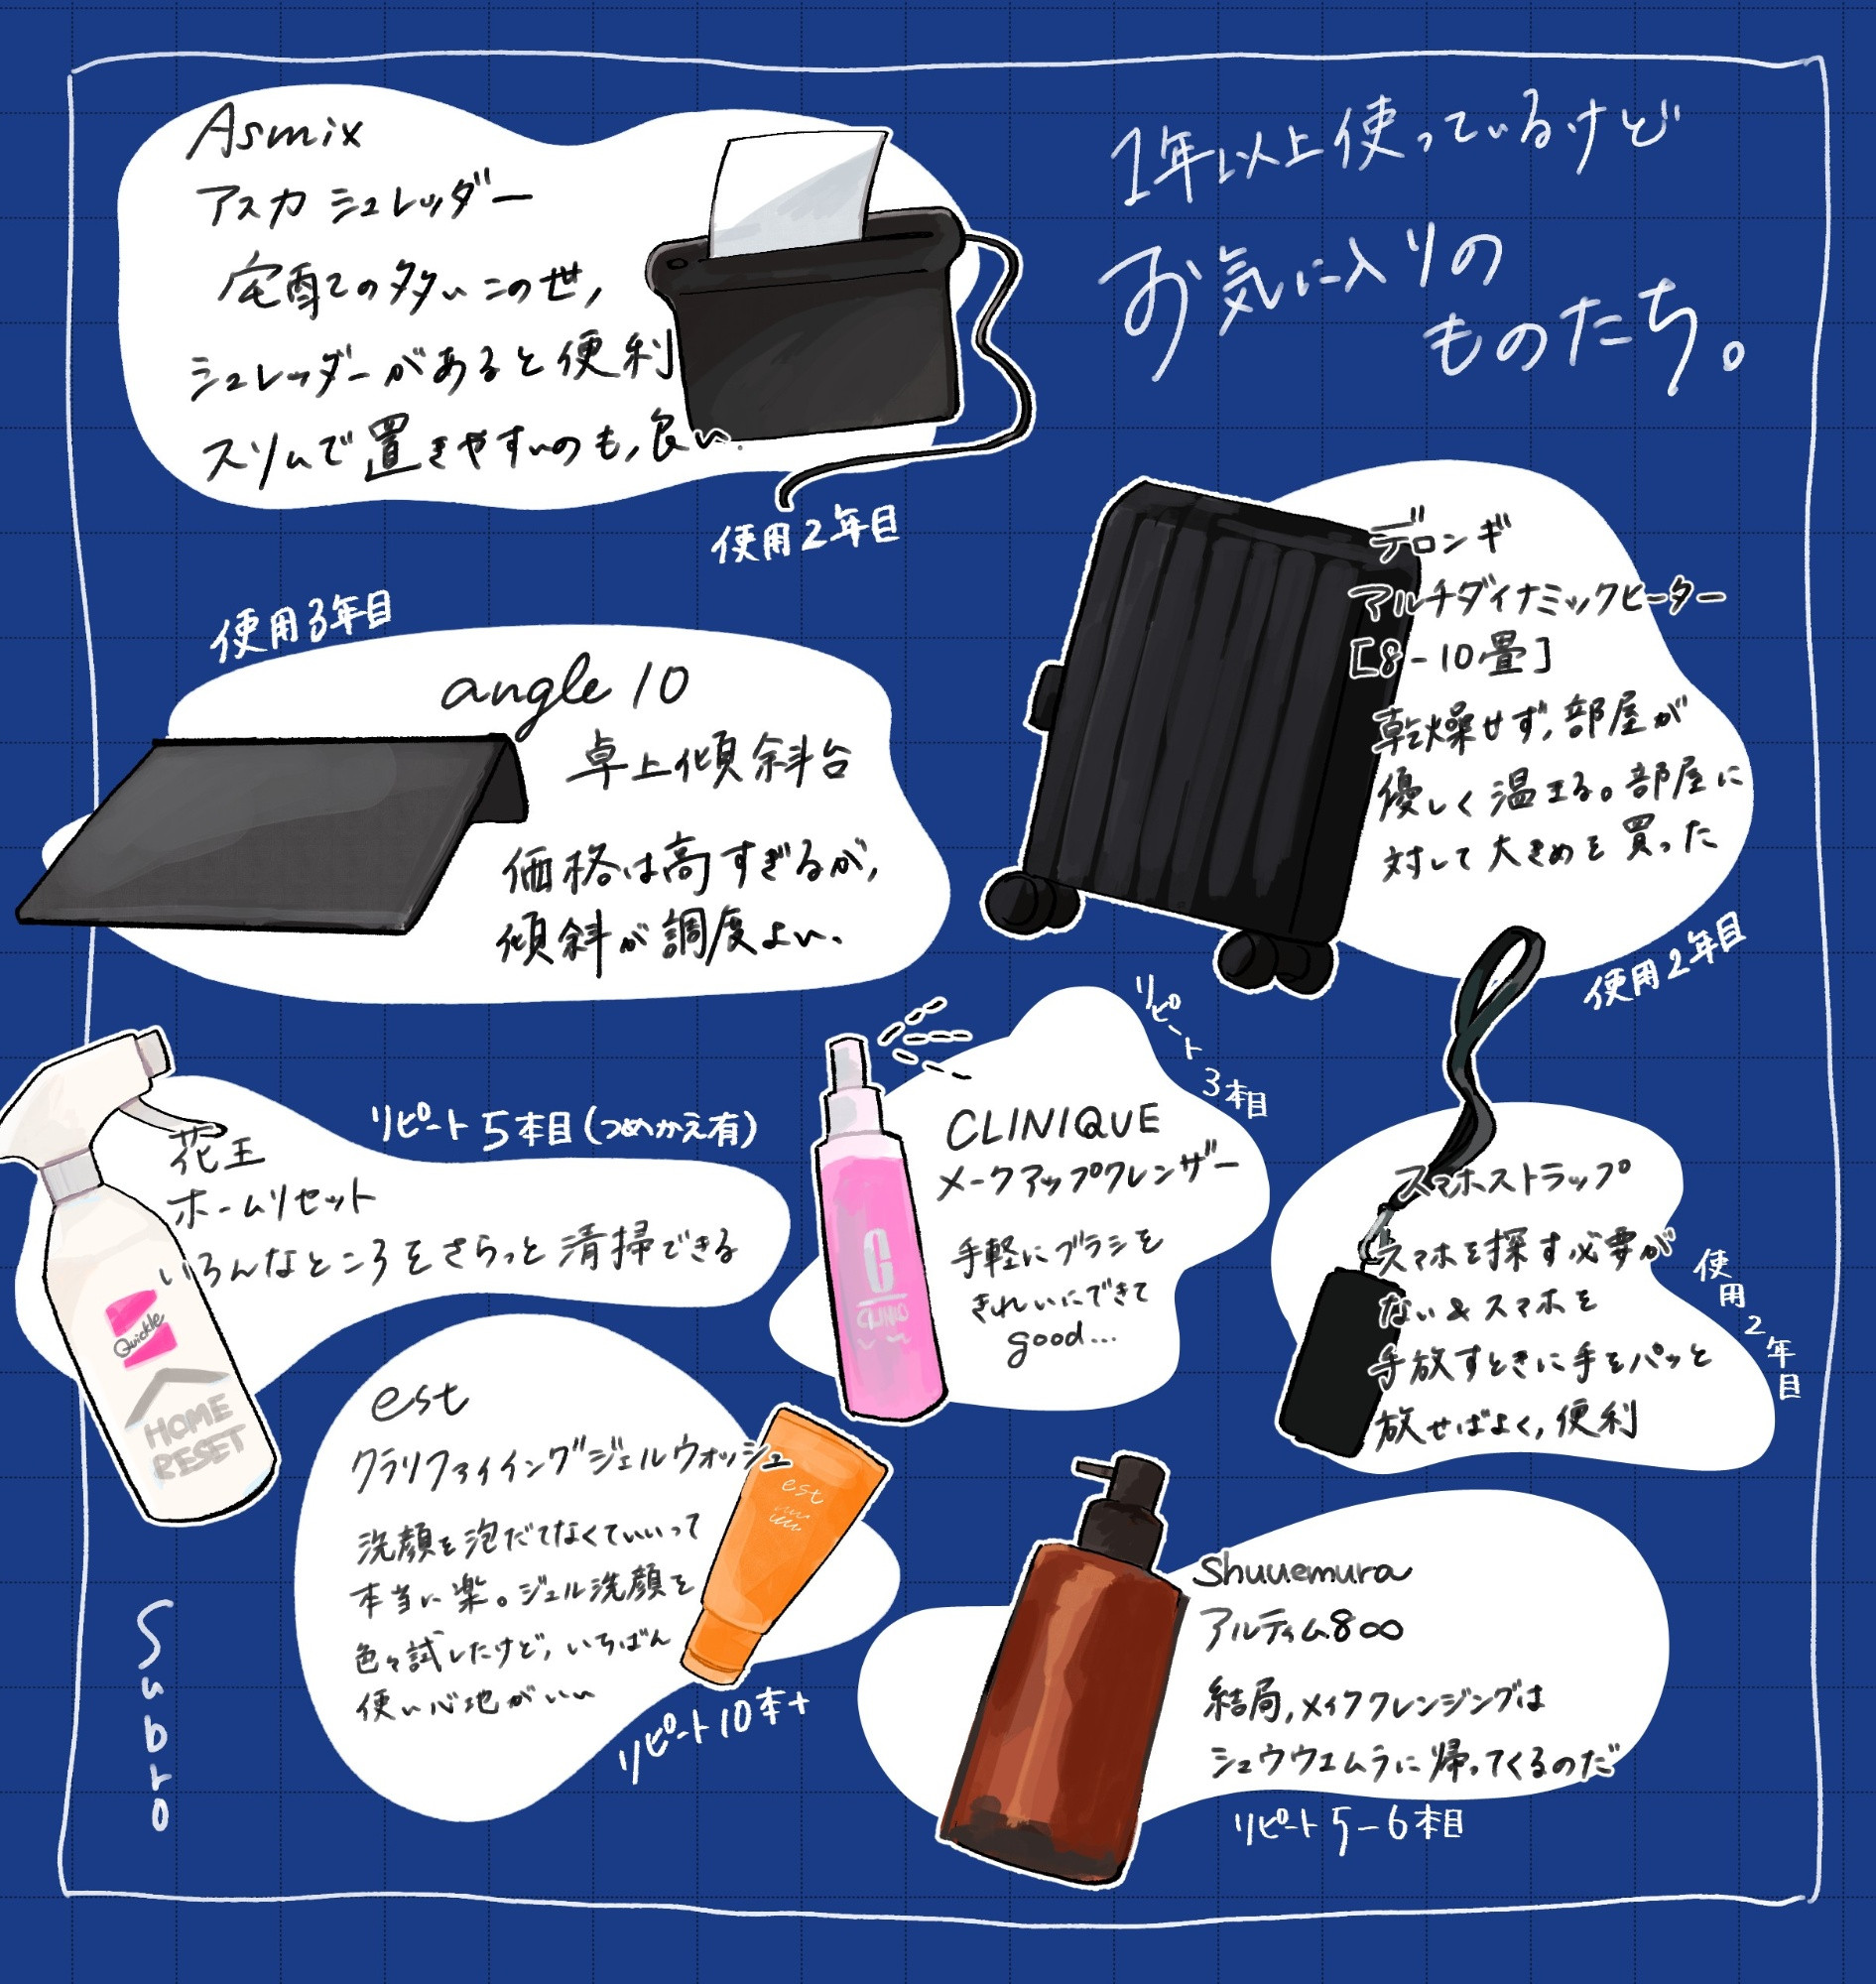 1年以上使っているけど
お気に入りの
ものたち。
Asmix
アスカ シュレッダー
宅配での多いこの世,
シュレッダーがあると便利
スリムで置きやすいのも,良い.
使用2年目
デロンギ
マルチダイナミックヒーター
[8-10畳]
乾燥せず,部屋が
優しく温まる。部屋に
対して大きめを買った
使用2年目
使用3年目
angle 10
卓上傾斜台
価格は高すぎるが,
傾斜が調度よい、
花王
ホームリセット
リピート5本目(つめかえ有)
いろんなところをさらっと清掃できる
Quickle
HOME
RESET
リピート3本目
CLINIQUE
メークアップクレンザー
手軽にブラシを
きれいにできて
good...
C
スマホストラップ
スマホを探す必要が
ない&スマホを
手放すときに手をパッと
放せばよく,便利
使用2年目
est
クラリファイイングジェルウォッシュ
洗顔を泡だてなくていいって
本当に楽。ジェル洗顔を
色々試したけど,いちばん
使い心地がいい
est
リピート10本+
shuuemura
アルティム8∞
結局,メイククレンジングは
シュウウエムラに帰ってくるのだ
リピート5-6本目
Subro